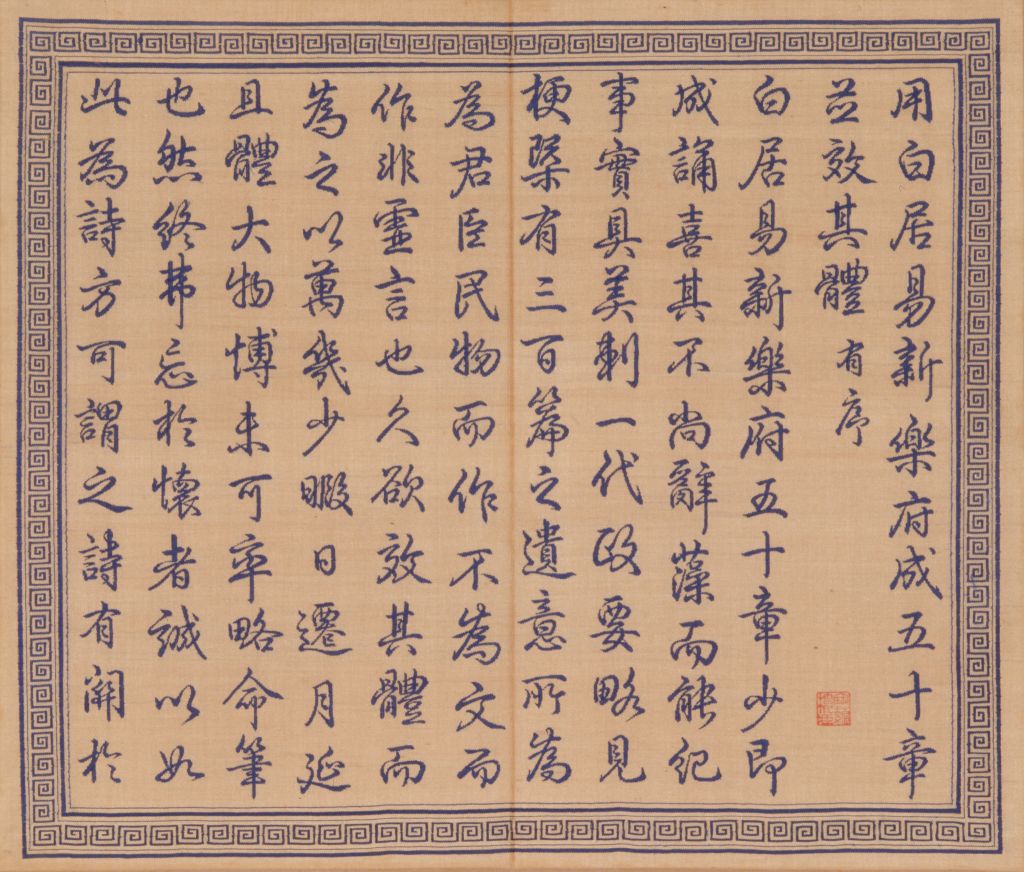 用白居易新樂府成五十章
並效其體有序
白居易新樂府五十章少即
成誦喜其不尚辭藻而能紀
事實具美刺一代政要略見
梗槩有三百篇之遺意所為
為君臣民物而作不為文而
作非虛言也久欲效其體而
為之以萬幾少暇日遷月延
且體大物博未可率略命筆
也然終弗忘於懷者誠以如
此為詩方可謂之詩有關於